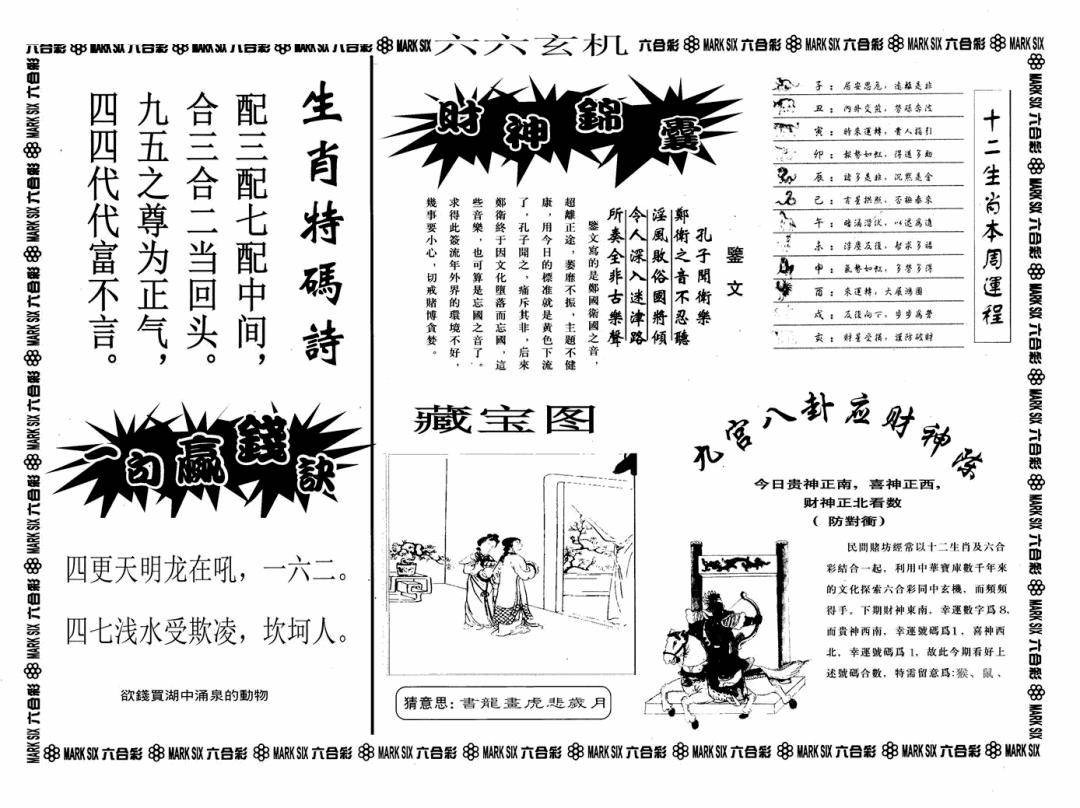 六合彩 MARK SIX 六合彩 MARK SIX 六合彩 MARK SIX 六合彩 MARK SIX 六六玄机 六合彩 MARK SIX 六合彩 MARK SIX 六合彩 MARK SIX 六合彩 MARK SIX
生肖特碼詩
配三配七配中间，
合三合二当回头。
九五之尊为正气，
四四代代富不言。
一句赢錢訣
四更天明龙在吼，一六二。
四七浅水受欺凌，坎坷人。
欲錢買湖中涌泉的動物
財神錦囊
鑒文
孔子聞衛樂
鄭衛之音不忍聽
淫風敗俗國將傾
令人深入迷津路
所奏全非古樂聲
鑒文寫的是鄭國衛國之音，
超離正途，萎靡不振，主題不健
康，用今日的標准就是黃色下流
了，孔子聞之，痛斥其非，后來
鄭衛終于因文化墮落而忘國，這
些音樂，也可算是忘國之音了。
求得此簽流年外界的環境不好，
幾事要小心，切戒賭博貪婪。
十二生肖本周運程
子：居安思危，遠離是非
丑：內外交煎，
寅：時來運轉，貴人指引
卯：氣勢如虹，得道多助
辰：諸多是非，沉默是金
巳：吉星拱照，否極泰來
午：暗涌潛伏，以退為進
未：
申：氣勢如虹，多勞多得
酉：來運轉，大展鴻圖
戌：
亥：財星受損，謹防破財
藏宝图
猜意思：書龍畫虎悲歲月
九宮八卦应财神
今日贵神正南，喜神正西，
财神正北看数
（防對衝）
民間賭坊經常以十二生肖及六合
彩結合一起，利用中華寶庫數千年來
的文化探索六合彩同中玄機，而頻頻
得手。下期財神東南，幸運數字爲8，
而貴神西南，幸運號碼爲1，喜神西
北，幸運號碼爲1，故此今期看好上
述號碼合數，特需留意爲：猴、鼠、
MARK SIX 六合彩 MARK SIX 六合彩 MARK SIX 六合彩 MARK SIX 六合彩 MARK SIX 六合彩 MARK SIX 六合彩 MARK SIX 六合彩 MARK SIX 六合彩 MARK SIX 六合彩 MARK SIX